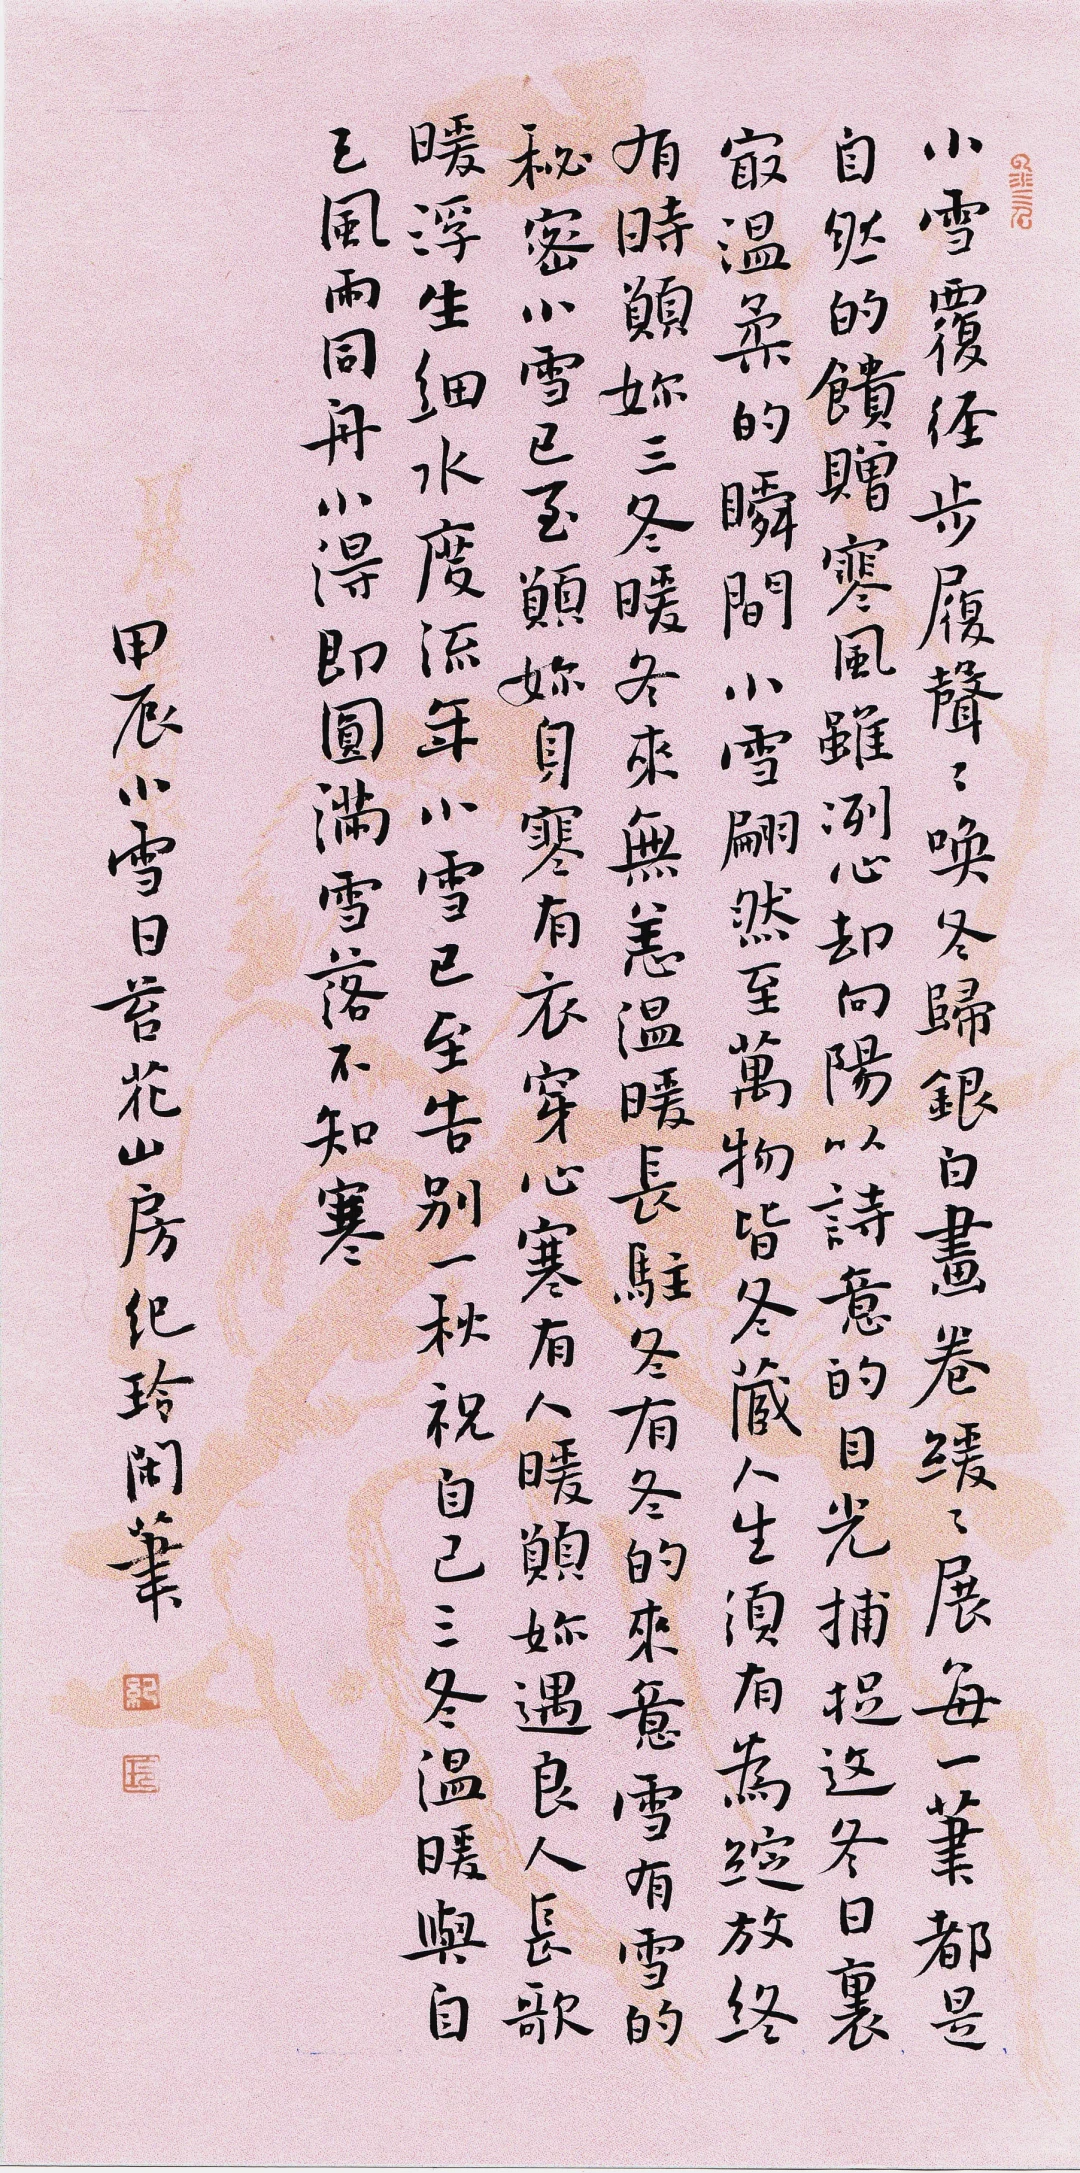 小雪覆径步履聲〻唤冬歸銀白畫卷緩〻展每一筆都是
自然的饋贈寒風雖冽心却向陽以詩意的目光捕捉这冬日裏
最温柔的瞬間小雪翩然至萬物皆冬藏人生須有為綻放終
有時顛妳三冬暖冬來無恙温暖長駐冬有冬的來意雪有雪的
秘密小雪已至顛妳身寒有衣穿心寒有人暖顛妳遇良人長歌
暖浮生细水度流年小雪已至告别一秋祝自己三冬温暖與自
己風雨同舟小得即圓滿雪落不知寒
甲辰小雪日苔花山房纪玲闲筆
紀
玲